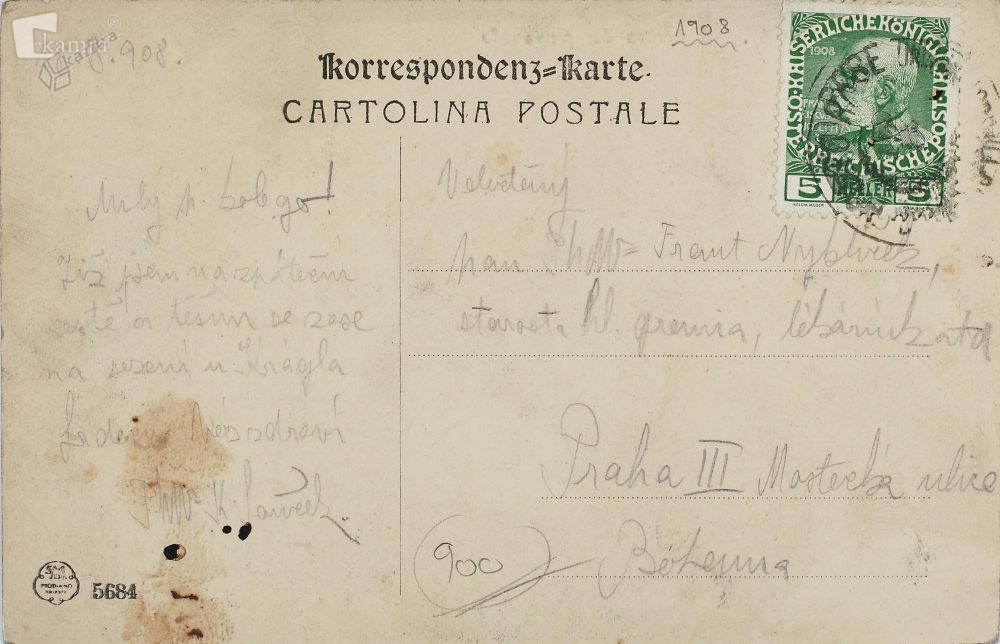 kampa
908.
1908
Korrespondenz=Karte.
CARTOLINA POSTALE
KAISERLICHE KÖNIGLICHE
ÖSTERREICHISCHE POST
1908
5 HELLER 5
Milý p. kolego!
Již jsem na zpáteční
cestě a těším se zase
na sezení u Krágla
Srdečně Vás zdraví
PhMr K.
Velectěný
pan PhMr Frant
starosta hl. gremia, lékárník atd
Praha III Mostecká ulice
Bohemia
900
5684